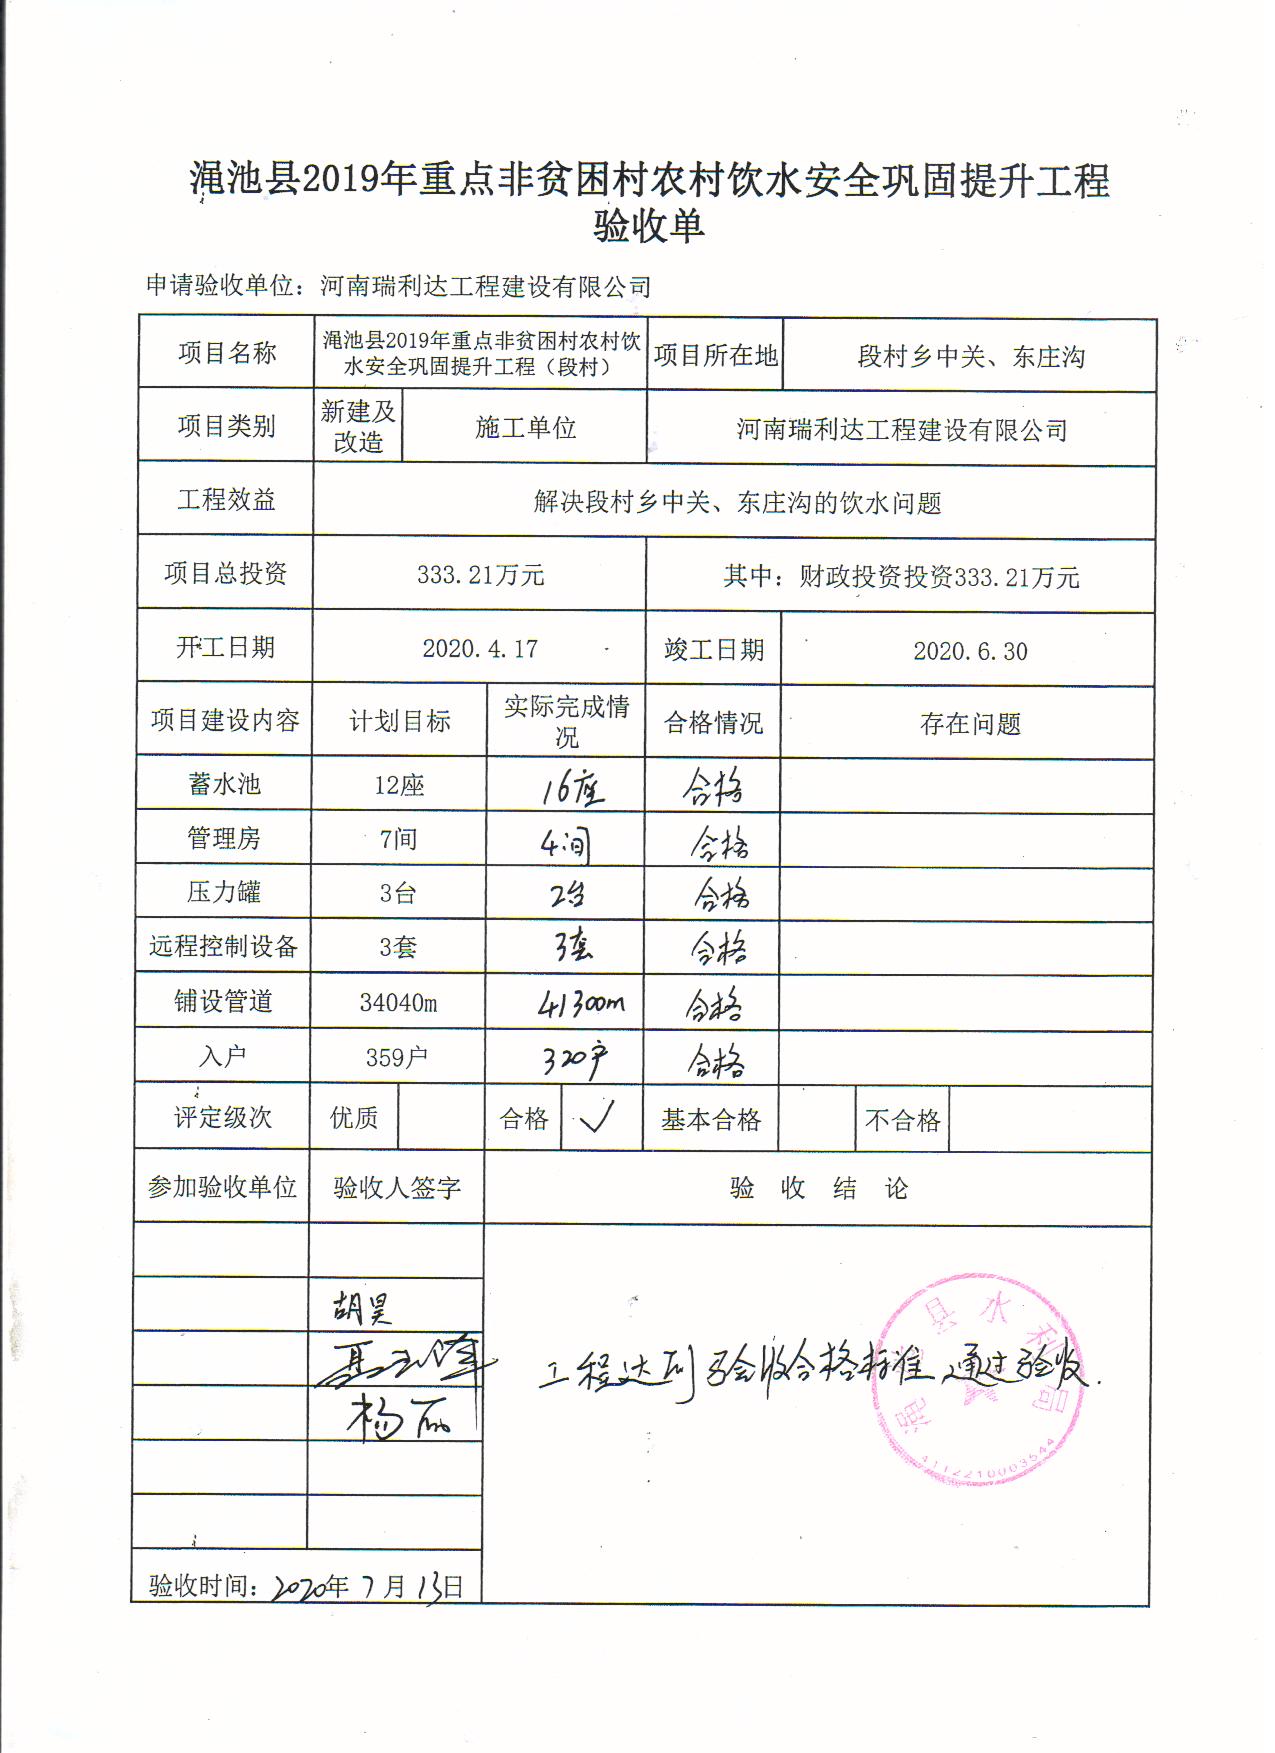 渑池县2019年重点非贫困村农村饮水安全巩固提升工程
验收单
申请验收单位：河南瑞利达工程建设有限公司
项目名称 渑池县2019年重点非贫困村农村饮水安全巩固提升工程（段村） 项目所在地 段村乡中关、东庄沟
项目类别 新建及改造 施工单位 河南瑞利达工程建设有限公司
工程效益 解决段村乡中关、东庄沟的饮水问题
项目总投资 333.21万元 其中：财政投资投资333.21万元
开工日期 2020.4.17 竣工日期 2020.6.30
项目建设内容 计划目标 实际完成情况 合格情况 存在问题
蓄水池 12座 16座 合格
管理房 7间 4间 合格
压力罐 3台 2台 合格
远程控制设备 3套 3套 合格
铺设管道 34040m 41300m 合格
入户 359户 320户 合格
评定级次 优质 合格 ✓ 基本合格 不合格
参加验收单位 验收人签字 验 收 结 论
胡昊
杨丽
工程达到验收合格标准，通过验收.
渑池县水利局
4112210003544
验收时间：2020年7月13日